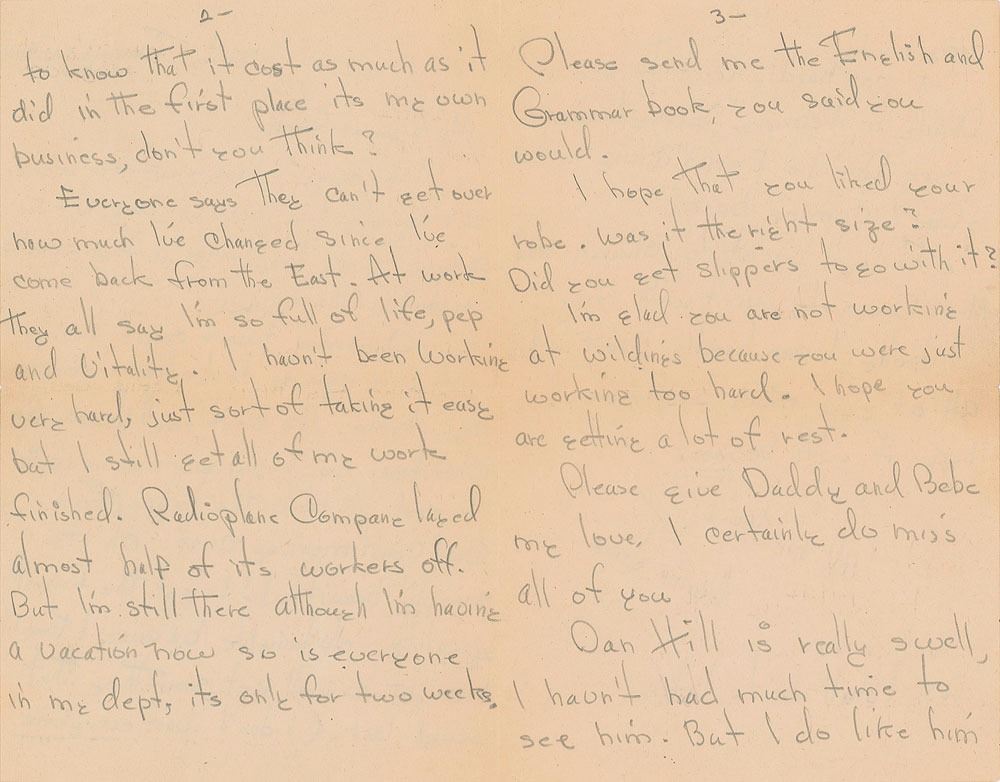 2-
to know that it cost as much as it
did in the first place its my own
business, don't you think?
Everyone says they can't get over
how much I've changed since, I've
come back from the East. At work
they all say I'm so full of life, pep
and vitality. I havn't been working
very hard, just sort of taking it easy
but I still get all of my work
finished. Radioplane Company layed
almost half of its workers off.
But I'm still there although I'm having
a vacation now so is everyone
in my dept, its only for two weeks.
3-
Please send me the English and
Grammar book, you said you
would.
I hope that you liked your
robe. Was it the right size?
Did you get slippers to go with it?
I'm glad you are not working
at wildings because you were just
working too hard. I hope you
are getting a lot of rest.
Please give Daddy and Bebe
my love, I certainly do miss
all of you
Dan Hill is really swell,
I havn't had much time to
see him. But I do like him